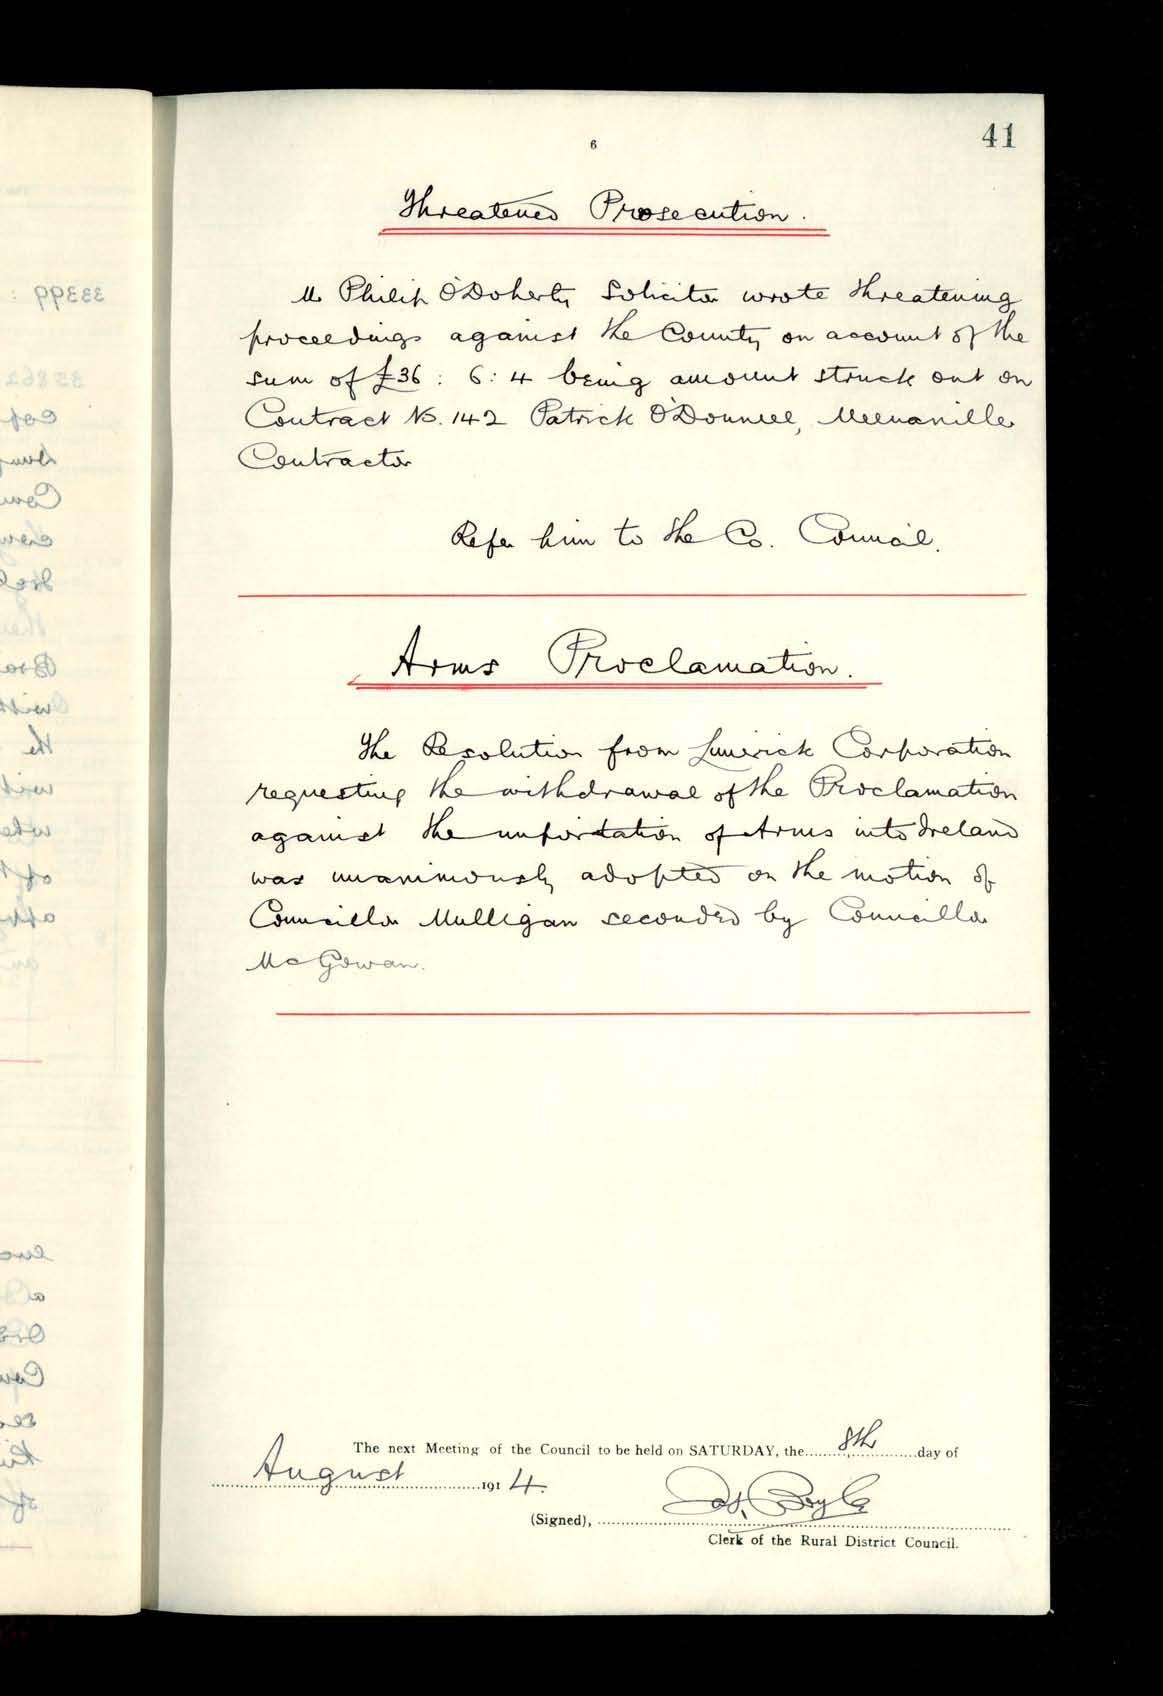 41
6
Threatened Prosecution.
Mr Philip O'Doherty Solicitor wrote threatening
proceedings against the County on account of the
sum of £36 : 6 : 4 being amount struck out on
Contract No. 142 Patrick O'Donnell, Meenaville
Contractor
Refer him to the Co. Council.
Arms Proclamation.
The Resolution from Limerick Corporation
requesting the withdrawal of the Proclamation
against the importation of Arms into Ireland
was unanimously adopted on the motion of
Councillor Mulligan seconded by Councillor
McGowan.
The next Meeting of the Council to be held on SATURDAY, the 8th day of
August 1914.
(Signed), Jas. Boyle
Clerk of the Rural District Council.
33399 :